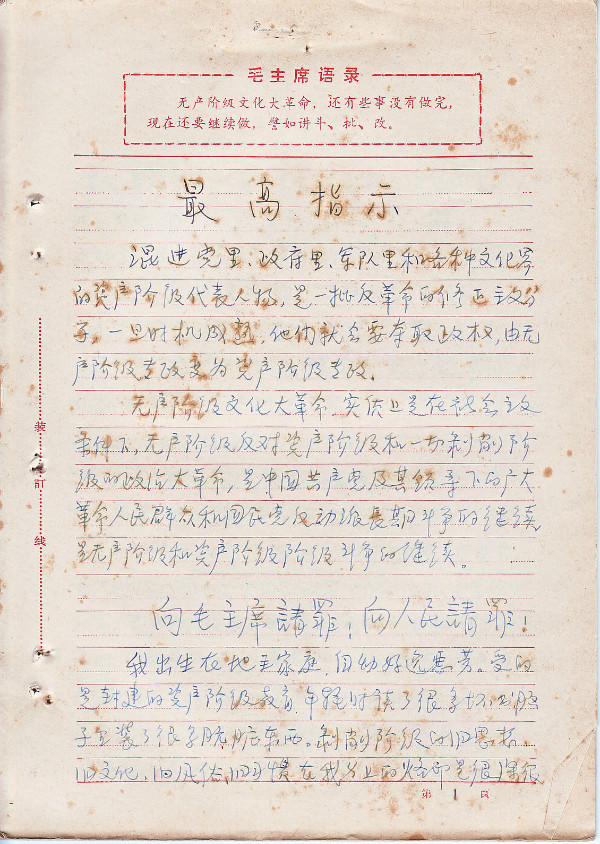 毛主席语录
无产阶级文化大革命，还有些事没有做完，
现在还要继续做，譬如讲斗、批、改。
最高指示
混进党里、政府里、军队里和各种文化界
的资产阶级代表人物，是一批反革命的修正主义分
子，一旦时机成熟，他们就会要夺取政权，由无
产阶级专政变为资产阶级专政。
无产阶级文化大革命，实质上是在社会主义
条件下，无产阶级反对资产阶级和一切剥削阶
级的政治大革命，是中国共产党及其領导下的广大
革命人民群众和国民党反动派長期斗争的继续，
是无产阶级和资产阶级阶级斗争的继续。
向毛主席請罪！向人民請罪！
我出生在地主家庭，自幼好逸恶劳。受的
是封建的资产阶级教育，年轻时读了很多坏书，脑
子里装了很多肮脏东西。剥削阶级的旧思想、
旧文化、旧风俗、旧习惯在我身上的烙印是很深很
装
订
线
第 1 页